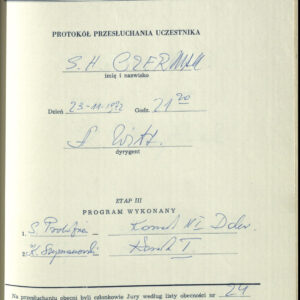 PROTOKÓŁ PRZESŁUCHANIA UCZESTNIKA
S. H CZERMAK
imię i nazwisko
Dzień 23-11-1972 Godz. 21 20
dyrygent
ETAP III
PROGRAM WYKONANY
1. S. Prokofiew
2. K. Szymanowski I
Na przesłuchaniu obecni byli członkowie Jury według listy obecności nr 24